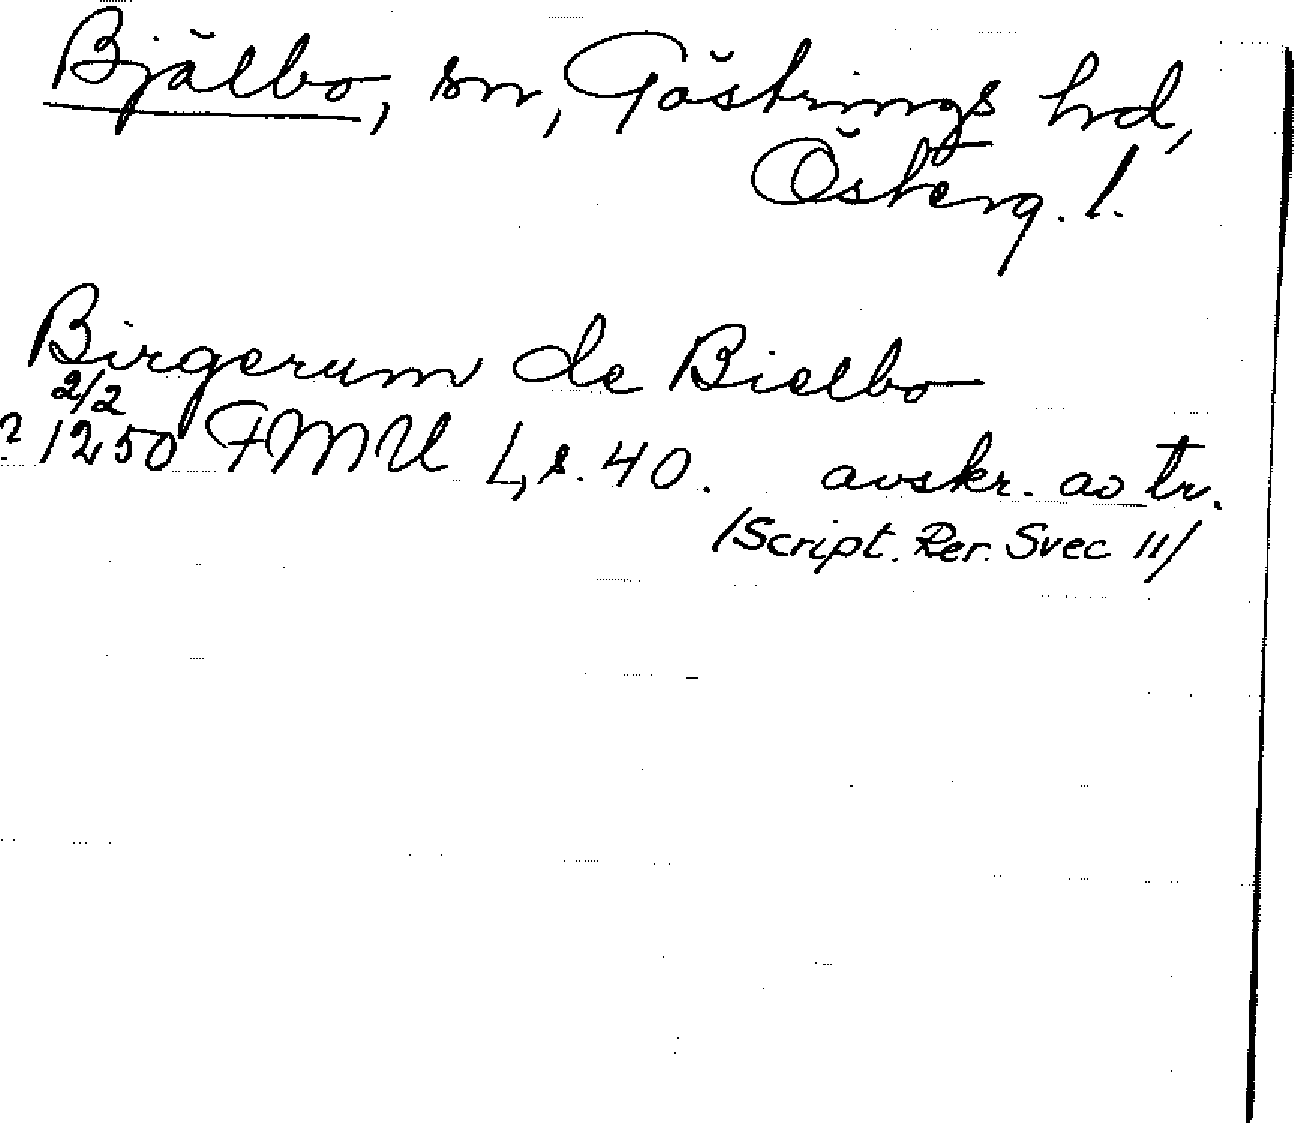 Bjälbo, sn, Göstrings hd,
Österg. l.
Birgerum de Bielbo
2/2
? 1250 FMU I, s. 40. avskr. av tr.
/Script. Rer. Svec II/